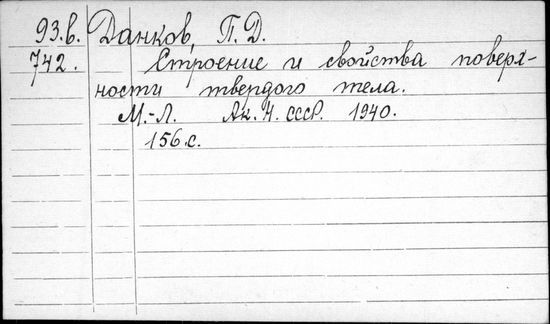 93.в. Данков, П. Д.
742. Строение и свойства поверх-
ности твердого тела.
М.-Л. Ак. Н. СССР. 1940.
156.с.